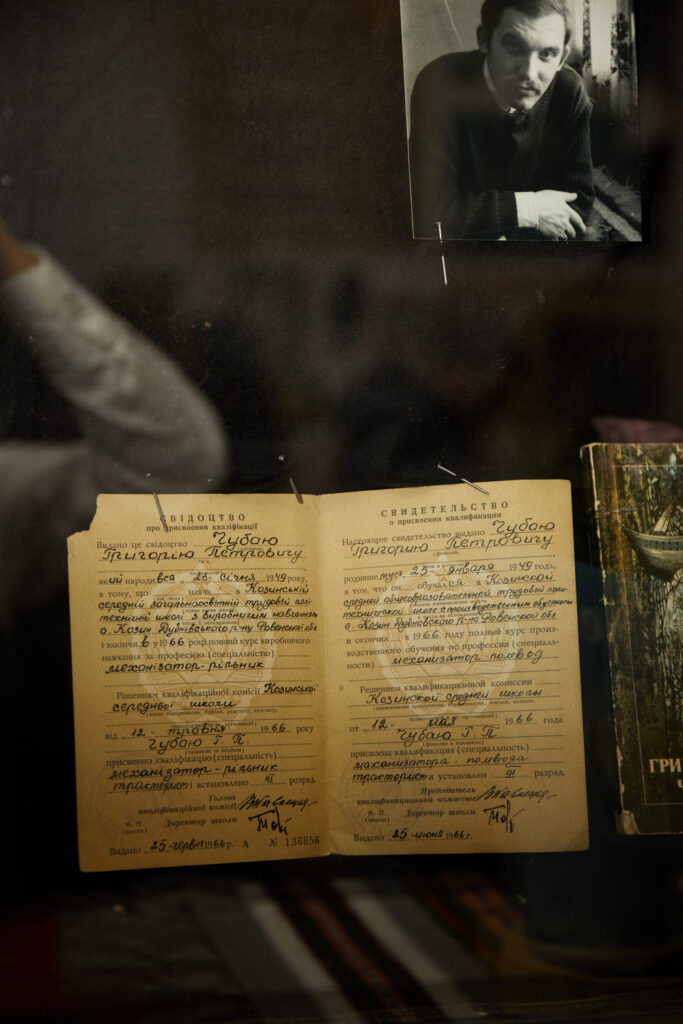 СВІДОЦТВО
про присвоєння кваліфікації
Видано це свідоцтво Чубаю
Григорію Петровичу
який народився 23 січня 1949 року,
в тому, що навча в Козинській
середній загальноосвітній трудовій полі-
технічній школі з виробничим навчанням
с. Козин Дубнівського р-ну Ровенської обл
і закінчив у 1966 році повний курс виробничого
навчання за професією (спеціальністю)
механізатор-рільник
Рішенням кваліфікаційної комісії Козинської
середньої школи
від „12" травня 1966 року
Чубаю Г. П.
присвоєно кваліфікацію (спеціальність)
механізатор-рільник
тракторист і встановлено III розряд.
Голова
кваліфікаційної комісії
М. П.
(школи)
Директор школи
Видано „25" червня 1966 р. А № 136656
СВИДЕТЕЛЬСТВО
о присвоении квалификации
Настоящее свидетельство выдано Чубаю
Григорию Петровичу
родившемуся 23 января 1949 года,
в том, что он обучался в Козинской
средней общеобразовательной трудовой поли-
технической школе с производственным обучением
с. Козин Дубновского р-на Ровенской обл
и окончил в 1966 году полный курс произ-
водственного обучения по профессии (специаль-
ности) механизатор-полевод
Решением квалификационной комиссии
Козинской средней школы
от „12" мая 1966 года
Чубаю Г. П.
присвоена квалификация (специальность)
механизатора-полевода
тракторист и установлен III разряд.
Председатель
квалификационной комиссии
М. П.
(школы)
Директор школы
Выдано „25" июня 1966 г.
ГРИ
Ч